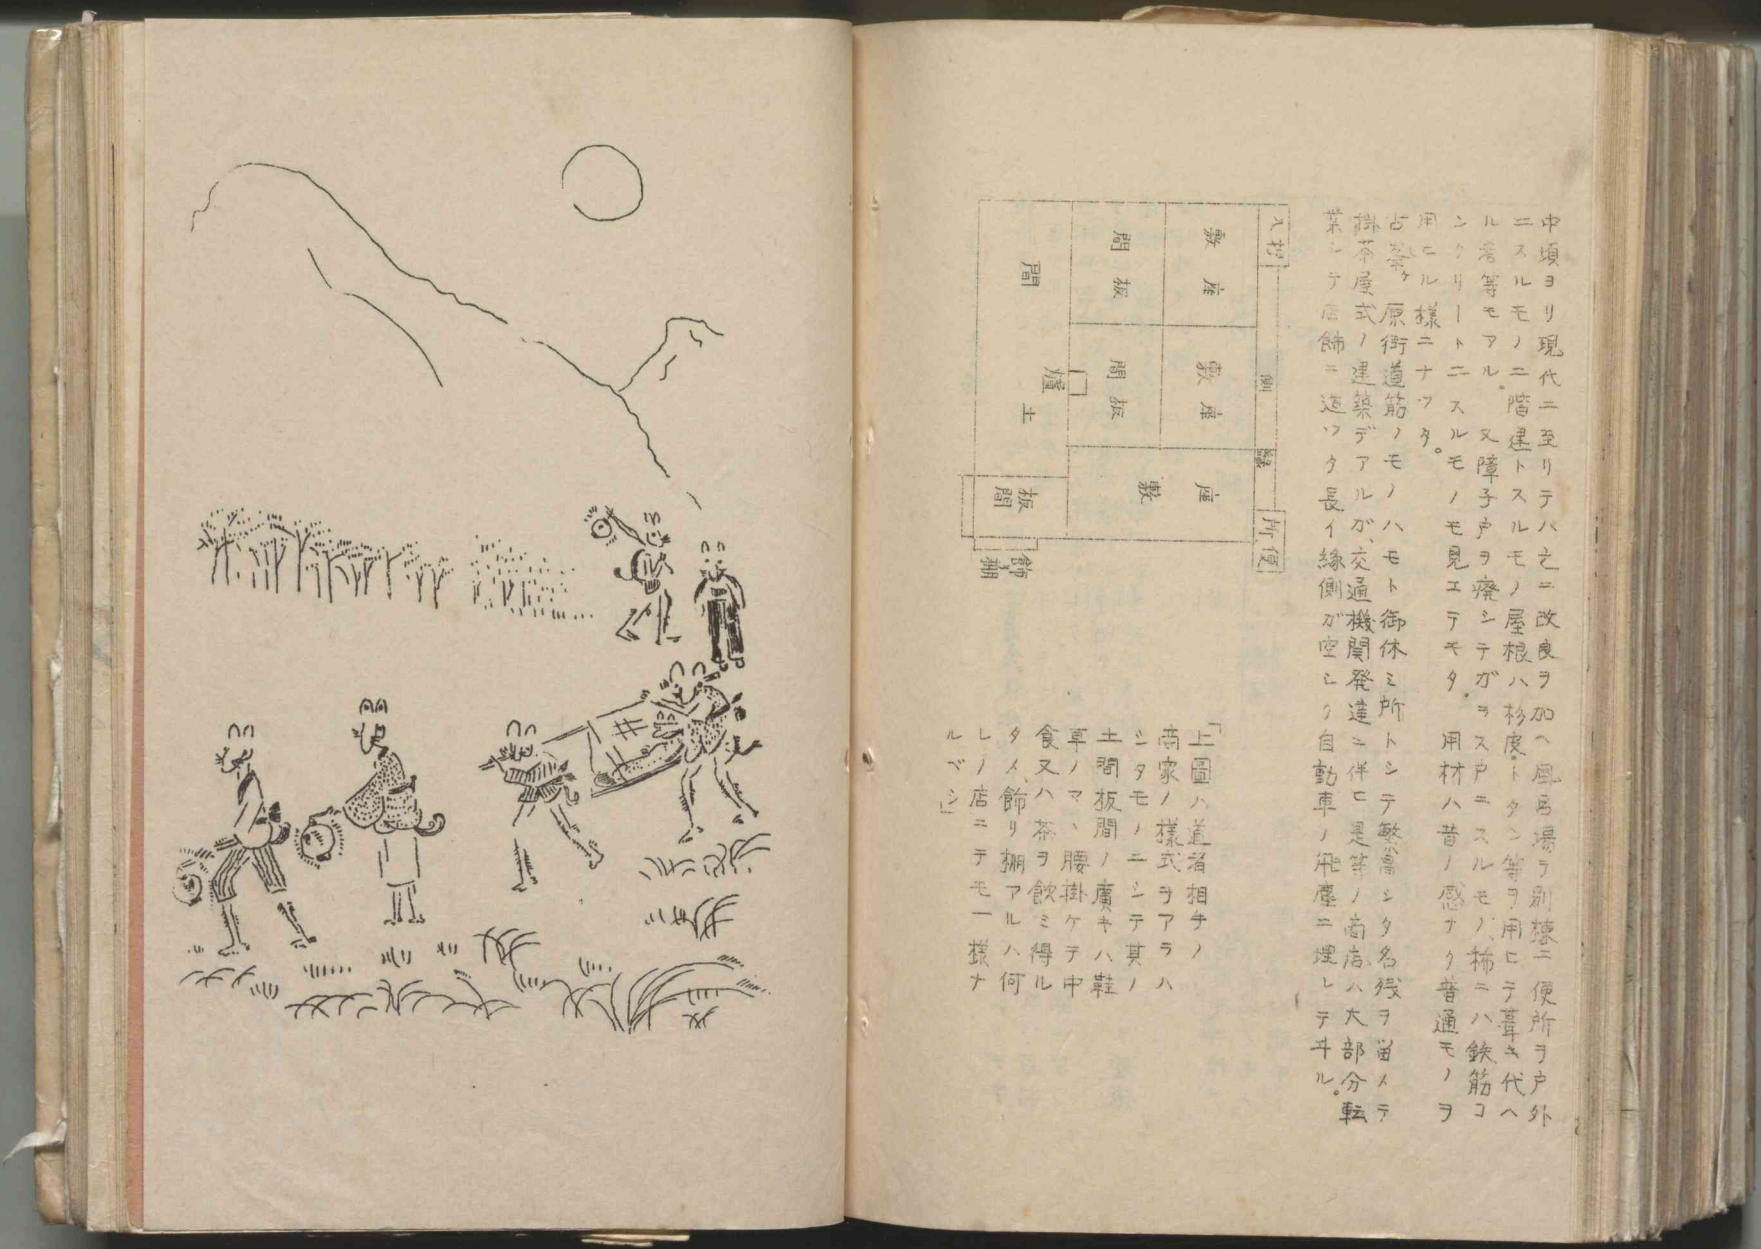 中頃ヨリ現代ニ至リテハ之ニ改良ヲ加ヘ風呂場ヲ別棟ニ便所ヲ戸外
ニスルモノ二階建トスルモノ屋根ハ杉皮トタン等ヲ用ヒテ葺キ代ヘ
ル者等モアル。又障子戸ヲ廃シテガラス戸ニスルモノ、柿ニハ鉄筋コ
ンクリートニスルモノモ見エテキタ。用材ハ昔ノ感ナク普通モノヲ
用ヒル様ニナッタ。
古茶ヶ原街道筋ノモノハモト御休ミ所トシテ繁富シタ名残ヲ留メテ
掛茶屋式ノ建築デアルガ、交通機関発達ニ伴ヒ是等ノ商店ハ大部分転
業シテ店飾ニ造ツタ長イ縁側ガ空シク自動車ノ飛塵ニ埋レテヰル。
入押
側
縁
所便
敷座
敷座
座敷
間板
間板
間土
爐
板間
飾リ棚
「上圖ハ道者相手ノ
商家ノ様式ヲアラハ
シタモノニシテ其ノ
土間板間ノ廣キハ鞋
草ノマヽ腰掛ケテ中
食又ハ茶ヲ飲ミ得ル
タメ、飾リ棚アルハ何
レノ店ニテモ一様ナ
ルベシ」